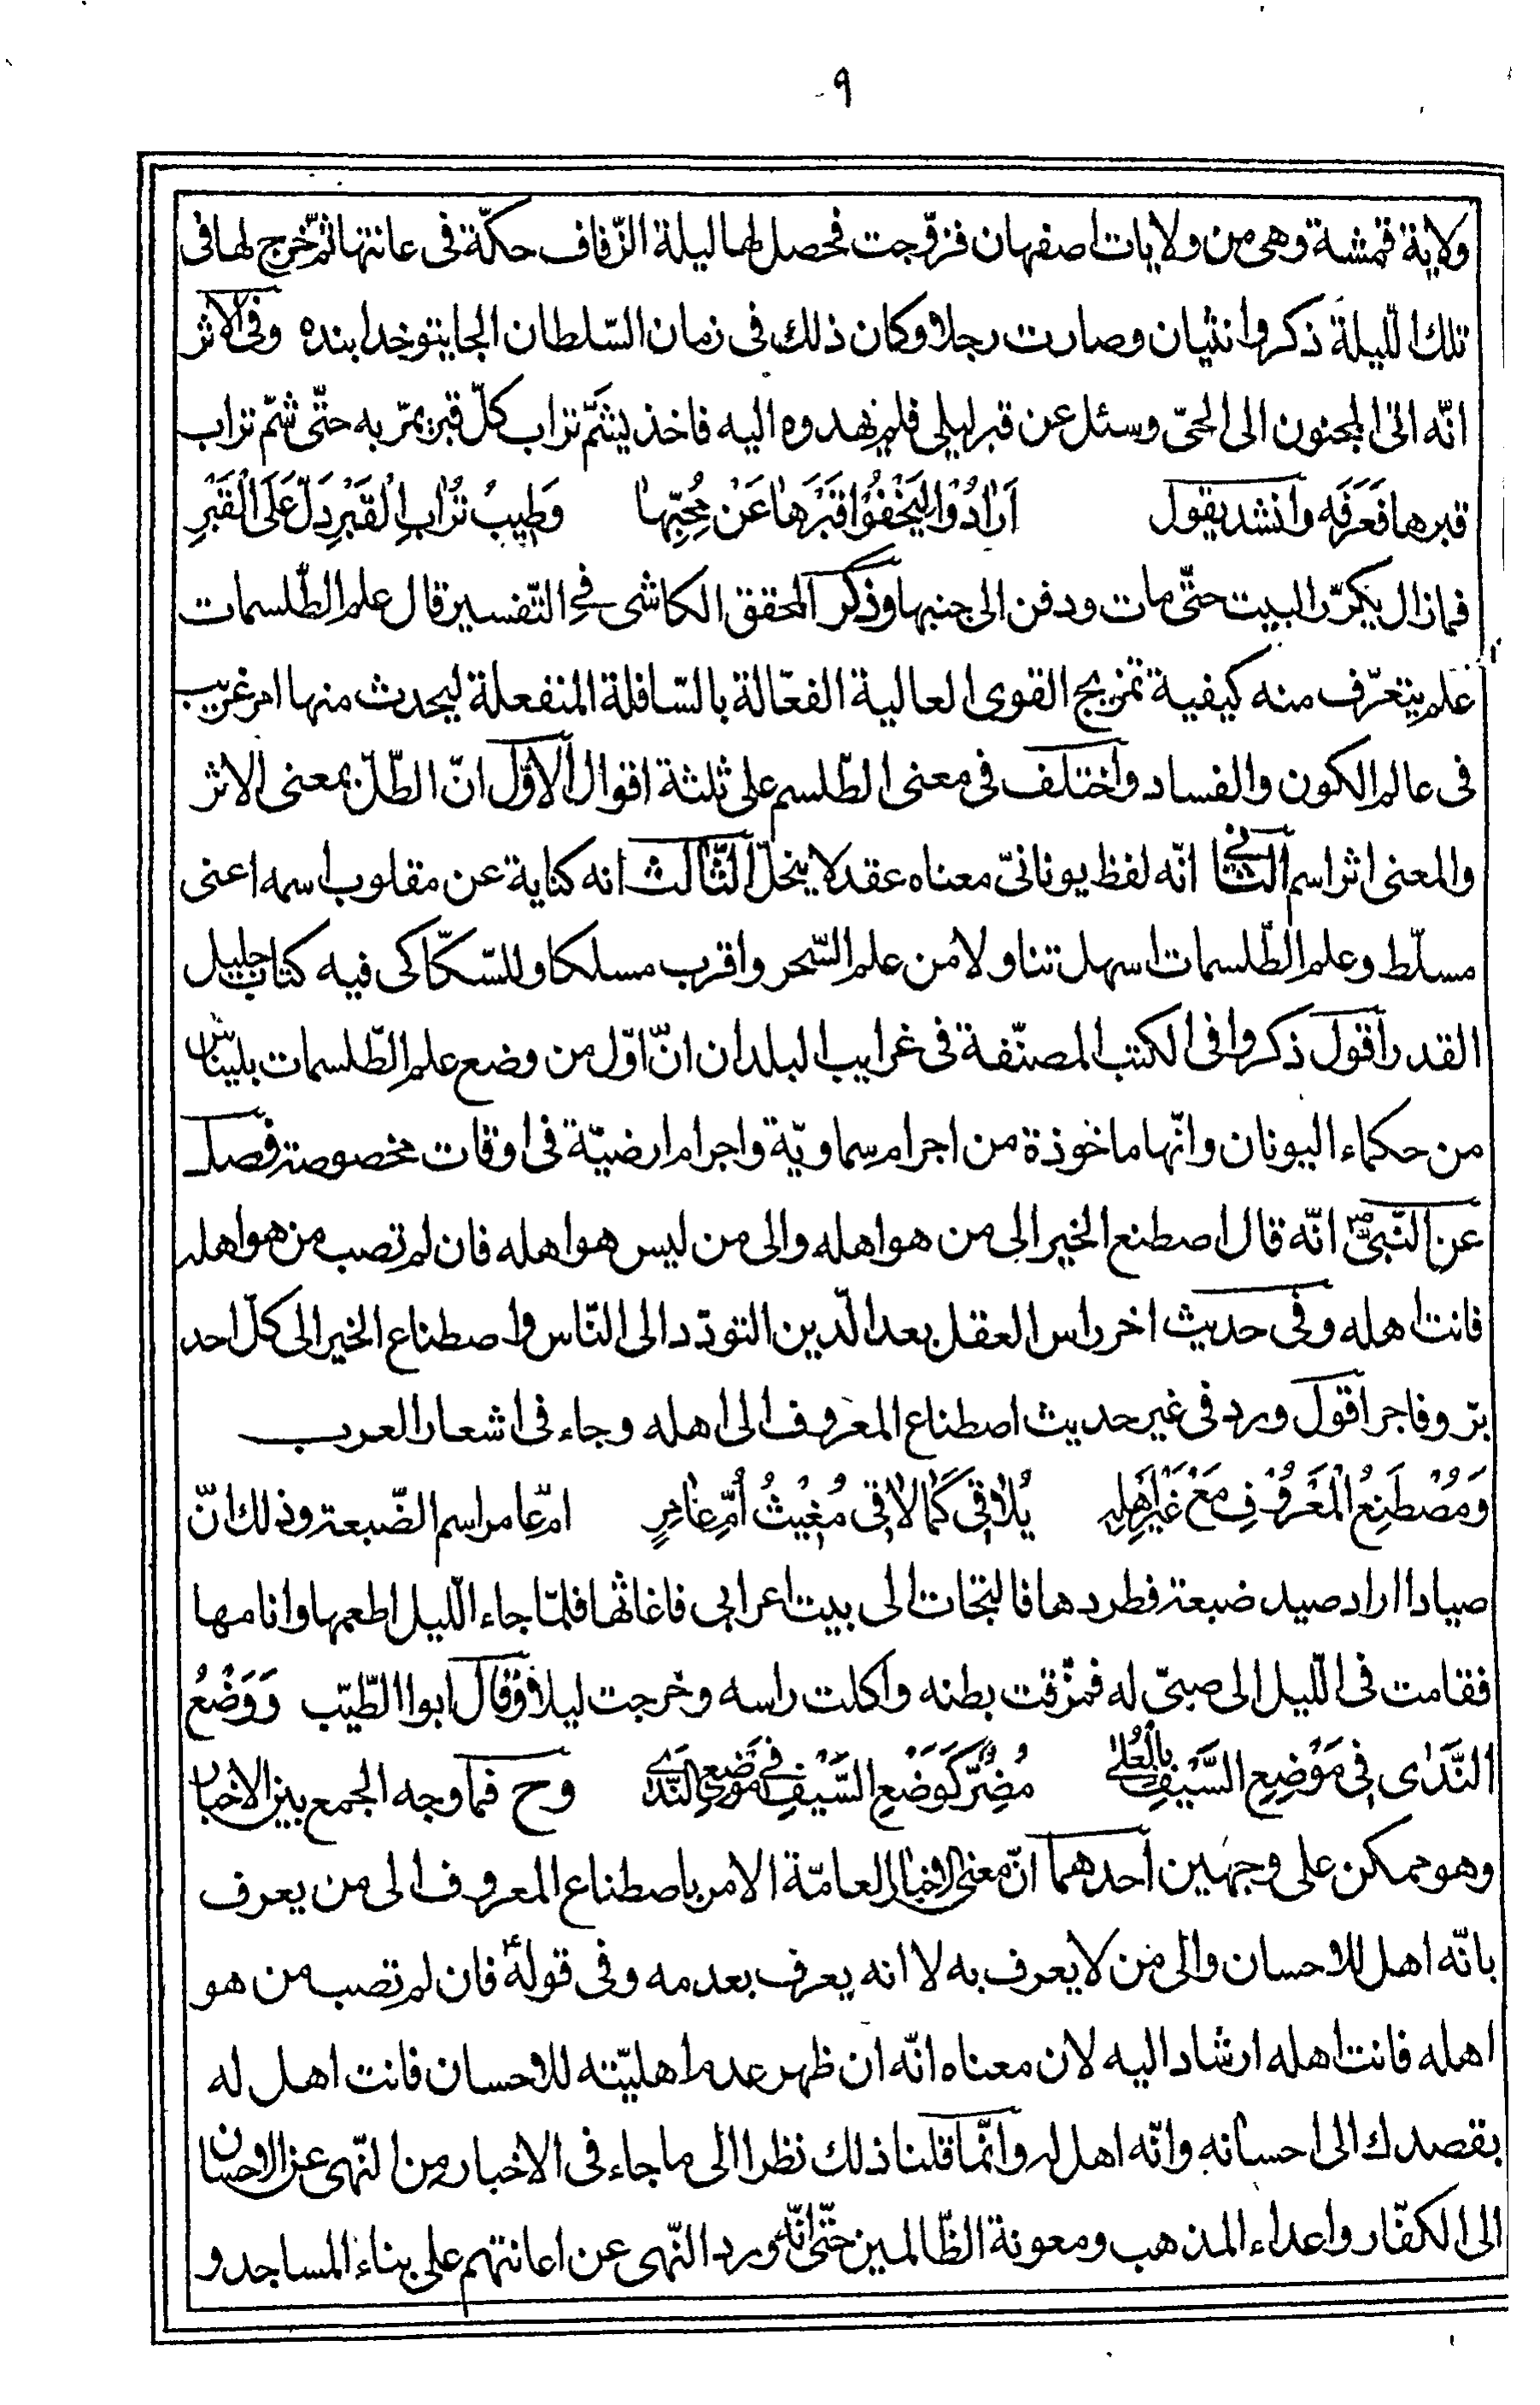 ٩
ولاية قمشة وهى من ولايات اصفهان فزوّجت فحصل لها ليلة الزّفاف حكّة فى عانتها ثمّ خرج لها فى
تلك اللّيلة ذكر وانثيان وصارت رجلا وكان ذلك فى زمان السّلطان الجايتو خدابنده وفى الاثر
انّه اتى المجنون الى الحىّ وسئل عن قبر ليلى فلم يهدوه اليه فاخذ يشمّ تراب كلّ قبر يمرّ به حتّى شمّ تراب
قبرها فَعَرَفَه وانشد يقول اَرَادُوْا لِيَخْفُوْا قَبْرَهَا عَنْ مُحِبِّهَا وَطِيبُ تُرَابِ الْقَبْرِ دَلَّ عَلَى الْقَبْرِ
فمازال يكرّر البيت حتّى مات ودفن الى جنبها وذكر المحقق الكاشى فى التّفسير قال علم الطّلسمات
علم يتعرّف منه كيفية تمزيج القوى العالية الفعّالة بالسّافلة المنفعلة ليحدث منها امر غريب
فى عالم الكون والفساد واختلف فى معنى الطّلسم على ثلثة اقوال الاوّل انّ الطّلّ بمعنى الاثر
والمعنى اثر اسم الثّانى انّه لفظ يونانىّ معناه عقد لا ينحلّ الثّالث انه كناية عن مقلوب اسمه اعنى
مسلّط وعلم الطّلسمات اسهل تناولا من علم السّحر واقرب مسلكا وللسّكّاكى فيه كتاب جليل
القدر اقول ذكروا فى الكتب المصنّفة فى غرايب البلدان انّ اوّل من وضع علم الطّلسمات بليناس
من حكماء اليونان وانّها ماخوذة من اجرام سماويّة واجرام ارضيّة فى اوقات مخصوصة فصل
عن النّبىّ ص انّه قال اصطنع الخير الى من هو اهله والى من ليس هو اهله فان لم تصب من هو اهله
فانت اهله وفى حديث اخر راس العقل بعد الدّين التودّد الى النّاس واصطناع الخير الى كلّ احد
برّ وفاجر اقول ورد فى غير حديث اصطناع المعروف الى اهله وجاء فى اشعار العرب
وَمُصْطَنِعُ الْمَعْرُوْفِ مَعْ غَيْرِ اَهْلِهِ يُلَاقِى كَمَا لَاقٰى مُغِيْثُ اُمِّ عَامِرٍ امّ عامر اسم الضّبعة وذلك انّ
صيادا اراد صيد ضبعة فطردها فالتجات الى بيت اعرابى فاغاثها فلمّا جاء اللّيل اطعمها وانامها
فقامت فى اللّيل الى صبىّ له فمزّقت بطنه واكلت راسه وخرجت ليلا وقال ابوا الطّيّب وَوَضْعُ
النَّدٰى فِى مَوْضِعِ السَّيْفِ بِالْعُلٰى مُضِرٌّ كَوَضْعِ السَّيْفِ فِى مَوْضِعِ النَّدٰى وح فما وجه الجمع بين الاخبار
وهو ممكن على وجهين احدهما انّ معنى الاخبار العامّة الامر باصطناع المعروف الى من يعرف
بانّه اهل للاحسان والى من لا يعرف به لا انه يعرف بعدمه وفى قوله ع فان لم تصب من هو
اهله فانت اهله ارشاد اليه لان معناه انّه ان ظهر عدم اهليّته للاحسان فانت اهل له
بقصدك الى احسانه وانّه اهل له وانّما قلنا ذلك نظرا الى ما جاء فى الاخبار من النّهى عن الاحسان
الى الكفّار واعداء المذهب ومعونة الظّالمين حتّى انّه ورد النّهى عن اعانتهم على بناء المساجد و